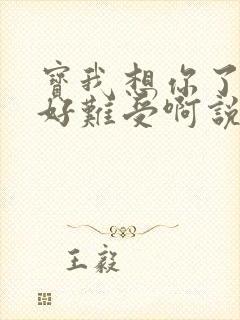 寶我想你了
好難受啊說
王毅